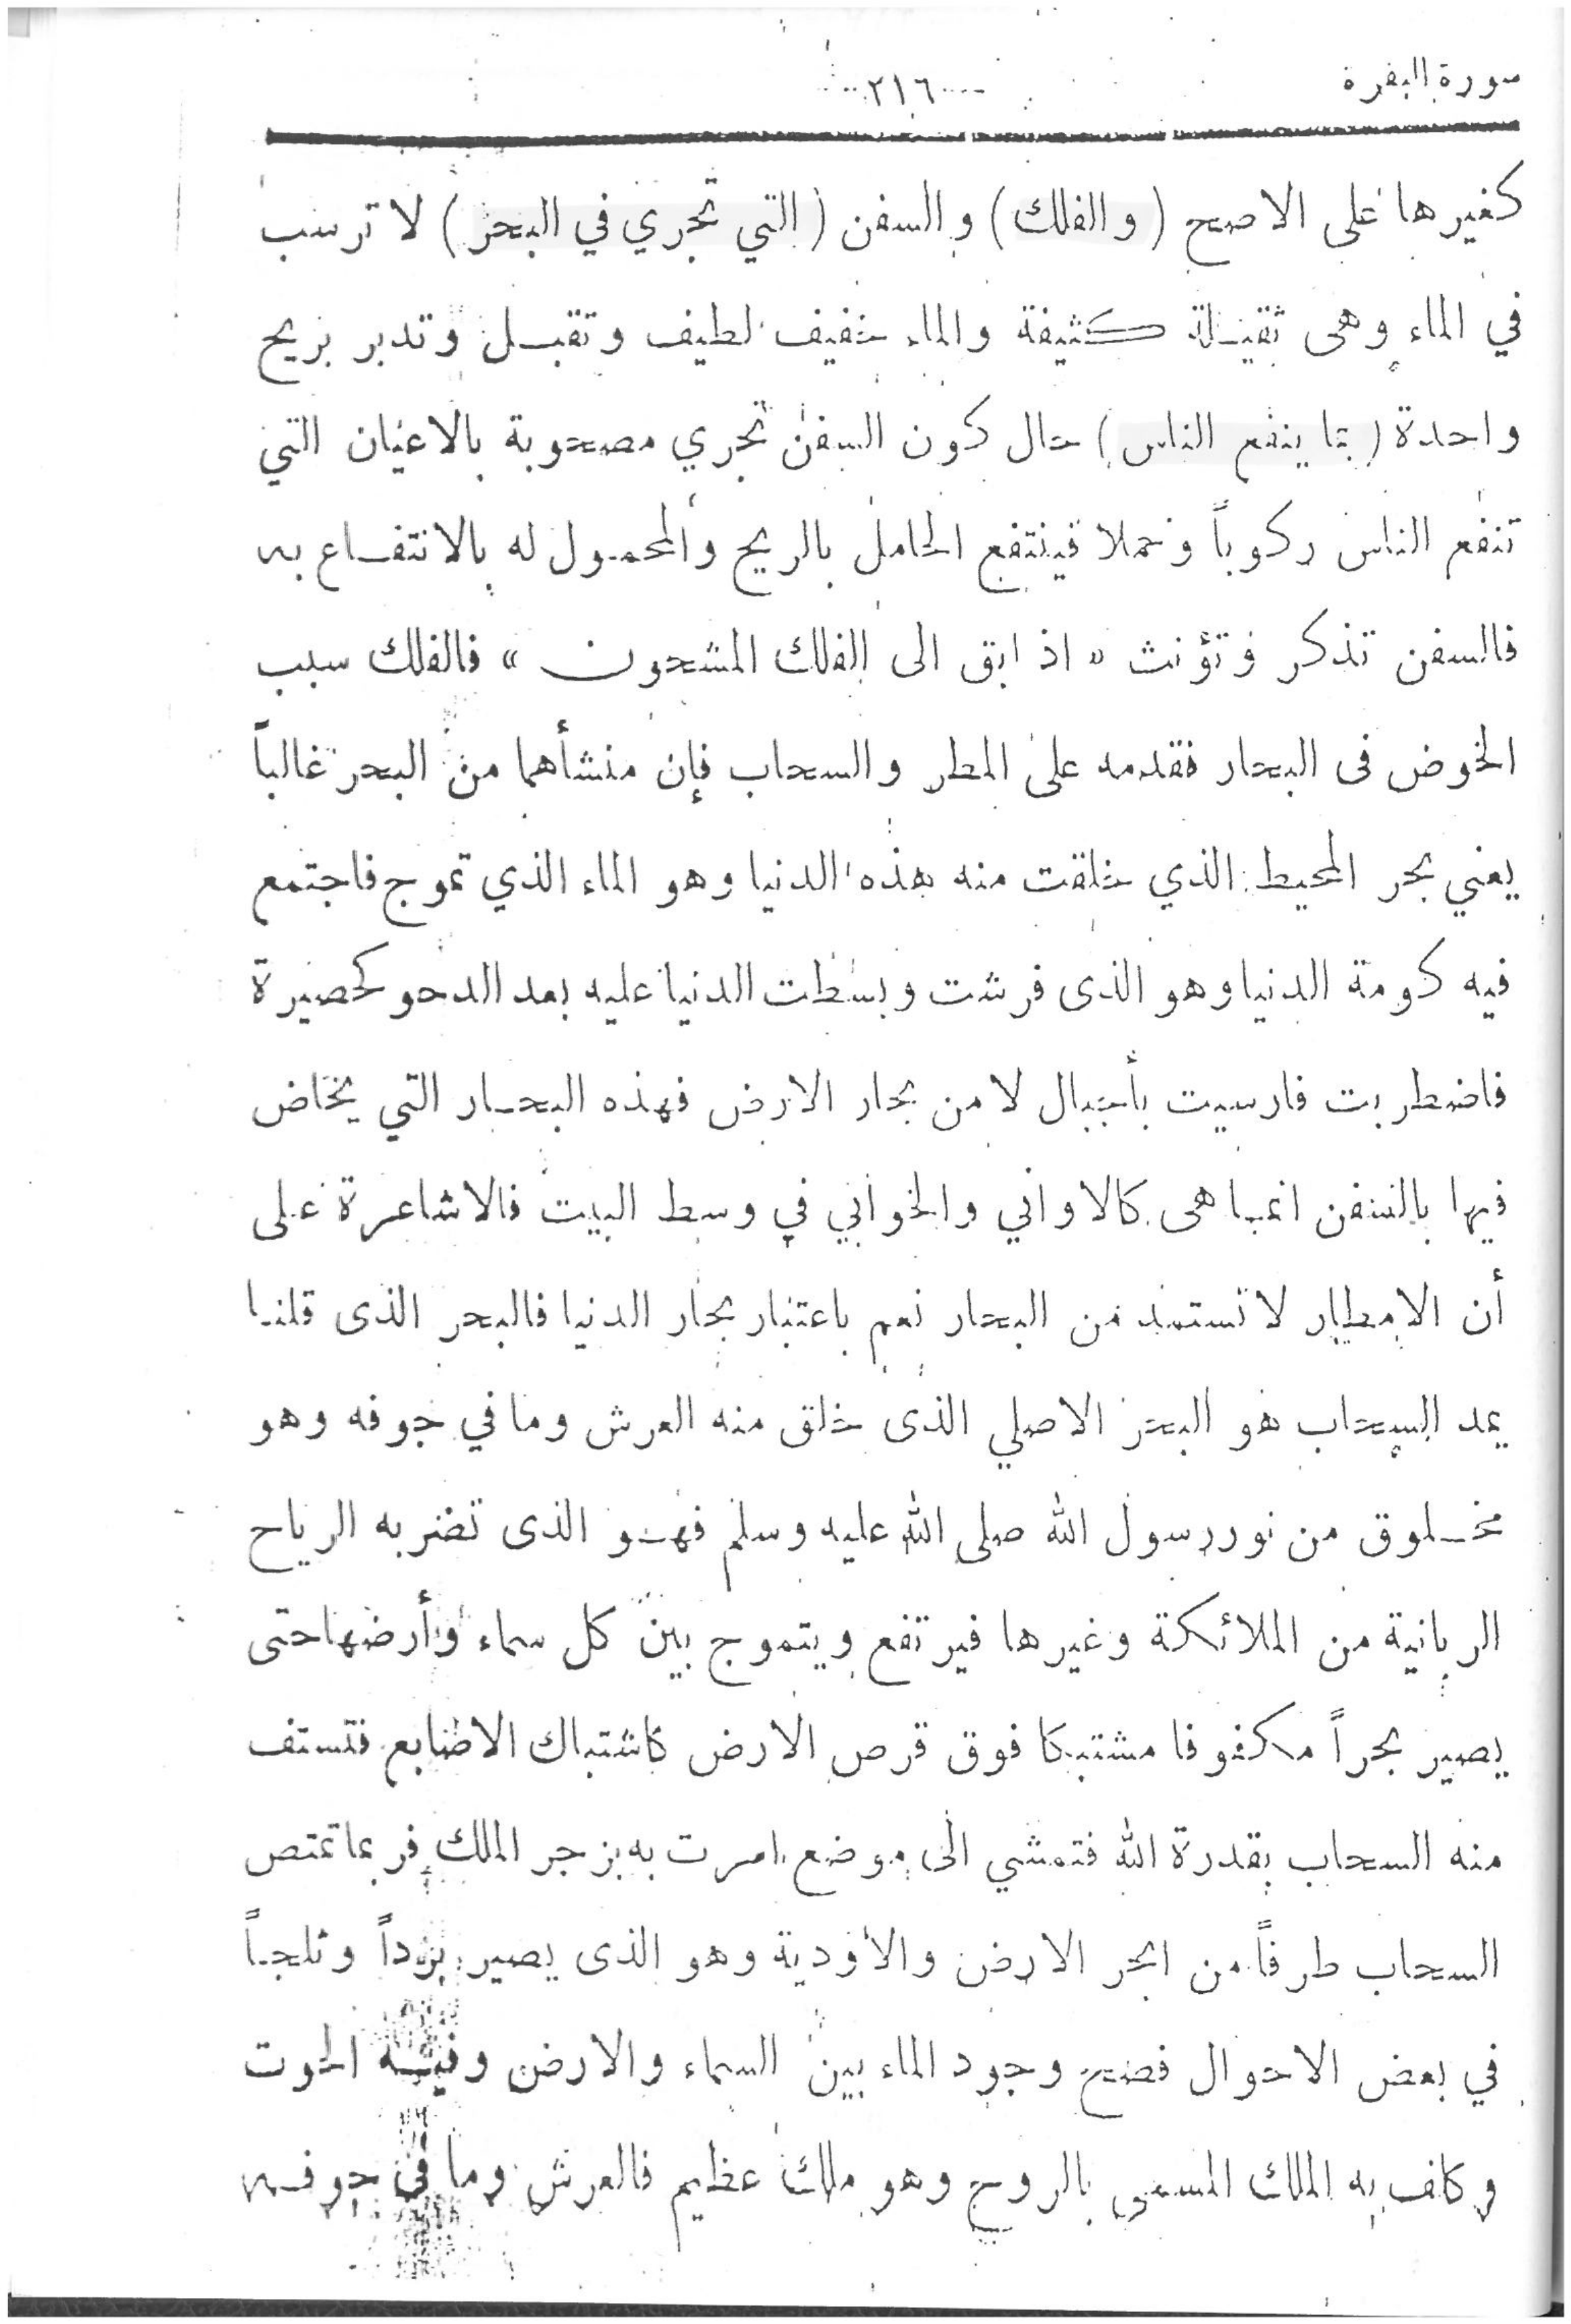 سورة البقرة
٢١٦
كغيرها على الاصح (والفلك) والسفن (التي تجري في البحر) لا ترسب
في الماء وهى ثقيلة كثيفة والماء خفيف لطيف وتقبل وتدبر بريح
واحدة (بما ينفع الناس) حال كون السفن تجري مصحوبة بالاعيان التي
تنفع الناس ركوباً وحملا فينتفع الحامل بالريح والمحمول له بالانتفاع به
فالسفن تذكر وتؤنث « اذ ابق الى الفلك المشحون » فالفلك سبب
الخوض فى البحار فقدمه على المطر والسحاب فإن منشأهما من البحر غالباً
يعني بحر المحيط الذي خلقت منه هذه الدنيا وهو الماء الذي تموج فاجتمع
فيه كومة الدنيا وهو الذى فرشت وبسطت الدنيا عليه بعد الدحو كحصيرة
فاضطربت فارسيت بأجبال لا من بحار الارض فهذه البحار التي يخاض
فيها بالسفن انما هى كالاواني والخوابي في وسط البيت فالاشاعرة على
أن الامطار لا تستمد من البحار نعم باعتبار بحار الدنيا فالبحر الذى قلنا
يمد السحاب هو البحر الاصلي الذى خلق منه العرش وما في جوفه وهو
مخلوق من نور رسول الله صلى الله عليه وسلم فهو الذى تضربه الرياح
الربانية من الملائكة وغيرها فيرتفع ويتموج بين كل سماء وأرضها حتى
يصير بحراً مكفوفا مشتبكا فوق قرص الارض كاشتباك الاصابع فتستف
منه السحاب بقدرة الله فتمشي الى موضع امرت به بزجر الملك فربما تمتص
السحاب طرفاً من ابحر الارض والأودية وهو الذى يصير برداً وثلجاً
في بعض الاحوال فصح وجود الماء بين السماء والارض وفيه الحوت
وكلف به الملك المسمى بالروح وهو ملك عظيم فالعرش وما في جوفه